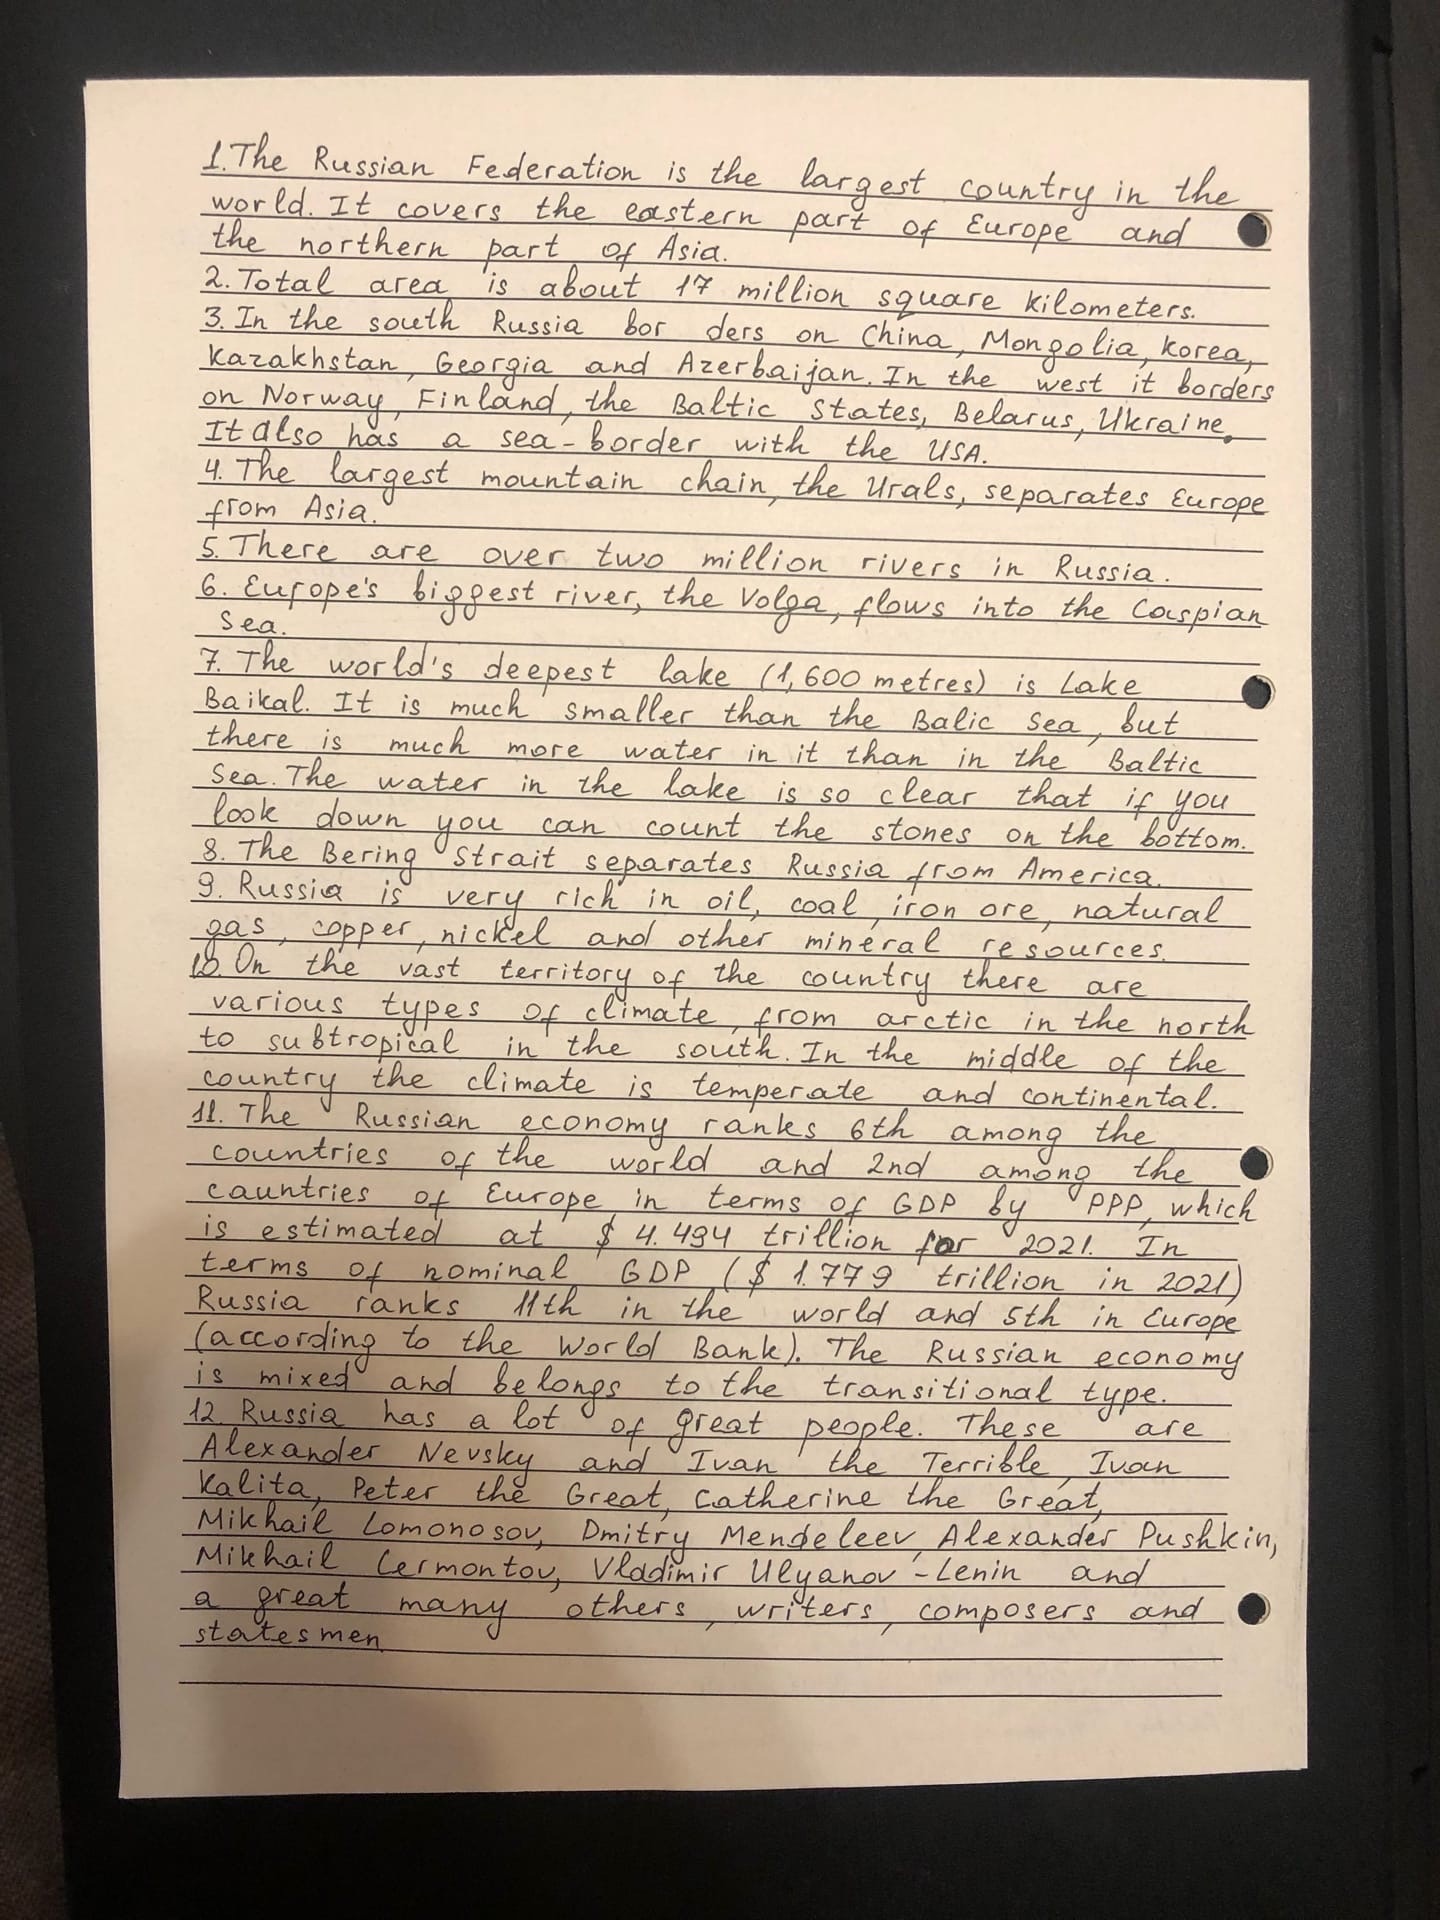 1. The Russian Federation is the largest country in the
world. It covers the eastern part of Europe and
the northern part of Asia.
2. Total area is about 17 million square kilometers.
3. In the south Russia bor ders on China, Mongolia, Korea,
Kazakhstan, Georgia and Azerbaijan. In the west it borders
on Norway, Finland, the Baltic States, Belarus, Ukraine.
It also has a sea-border with the USA.
4. The largest mountain chain, the Urals, separates Europe
from Asia.
5. There are over two million rivers in Russia.
6. Europe's biggest river, the Volga, flows into the Caspian
Sea.
7. The world's deepest lake (1,600 metres) is Lake
Baikal. It is much smaller than the Balic Sea, but
there is much more water in it than in the Baltic
Sea. The water in the lake is so clear that if you
look down you can count the stones on the bottom.
8. The Bering Strait separates Russia from America.
9. Russia is very rich in oil, coal, iron ore, natural
gas, copper, nickel and other mineral resources.
10. On the vast territory of the country there are
various types of climate, from arctic in the north
to subtropical in the south. In the middle of the
country the climate is temperate and continental.
11. The Russian economy ranks 6th among the
countries of the world and 2nd among the
cauntries of Europe in terms of GDP by PPP, which
is estimated at $ 4.494 trillion for 2021. In
terms of nominal GDP ($ 1.779 trillion in 2021)
Russia ranks 11th in the world and 5th in Europe
(according to the World Bank). The Russian economy
is mixed and belongs to the transitional type.
12. Russia has a lot of great people. These are
Alexander Nevsky and Ivan the Terrible, Ivan
Kalita, Peter the Great, Catherine the Great,
Mikhail Lomonosov, Dmitry Mendeleev, Alexander Pushkin,
Mikhail Lermontov, Vladimir Ulyanov-Lenin and
a great many others, writers, composers and
statesmen